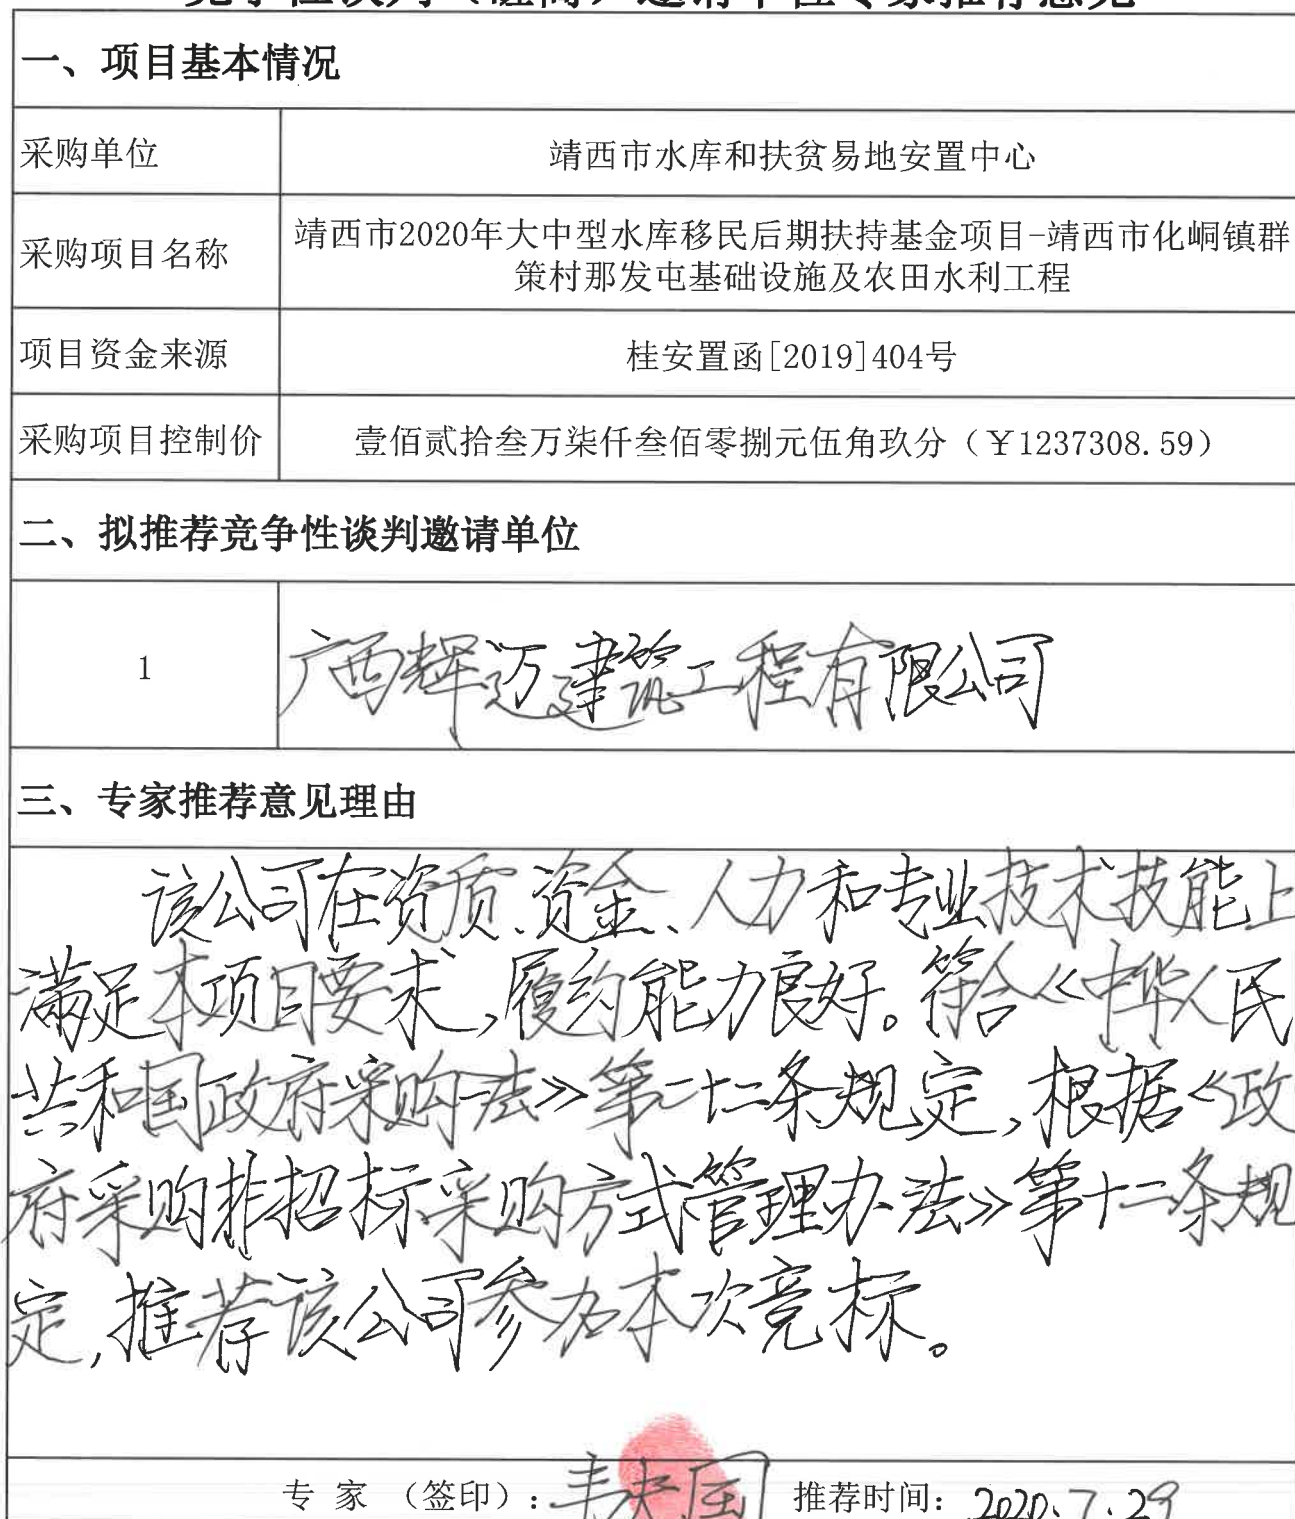 竞争性谈判（磋商）邀请单位专家推荐意见
一、项目基本情况
采购单位
靖西市水库和扶贫易地安置中心
采购项目名称
靖西市2020年大中型水库移民后期扶持基金项目-靖西市化峒镇群
策村那发屯基础设施及农田水利工程
项目资金来源
桂安置函[2019]404号
采购项目控制价
壹佰贰拾叁万柒仟叁佰零捌元伍角玖分（￥1237308.59）
二、拟推荐竞争性谈判邀请单位
1
广西辉迈建筑工程有限公司
三、专家推荐意见理由
该公司在资质、资金、人力和专业技术技能上
满足本项目要求，履约能力良好。符合《中华人民
共和国政府采购法》第二十二条规定，根据《政
府采购非招标采购方式管理办法》第十二条规
定，推荐该公司参加本次竞标。
专 家 （签印）：
推荐时间： 2020.7.29